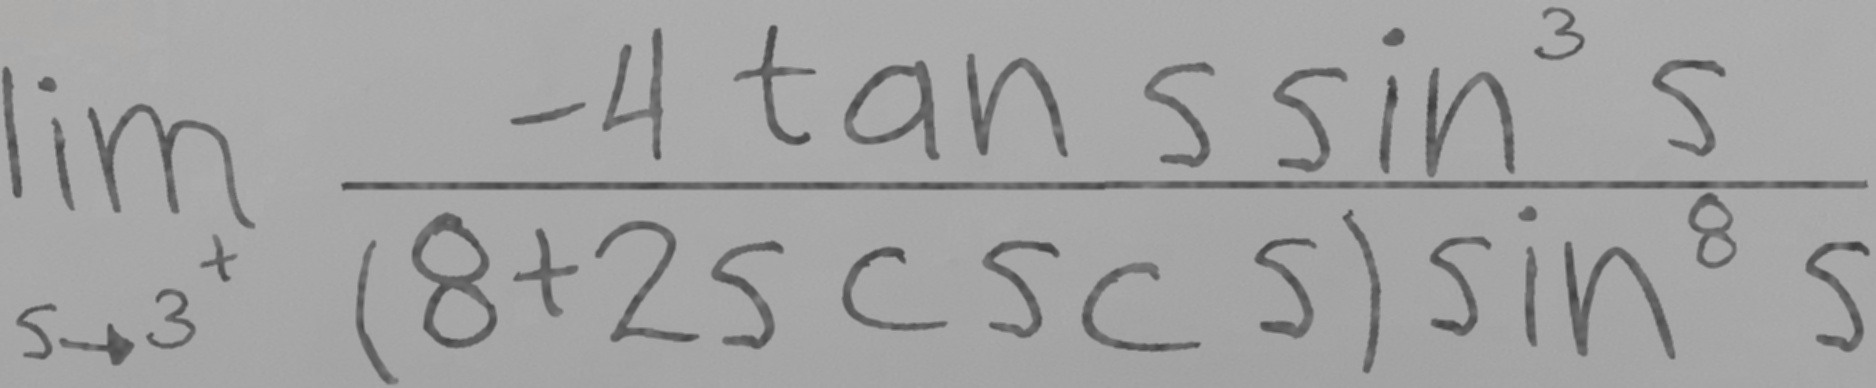 \lim_{s \to 3^+} \frac{-4 \tan s \sin^3 s}{(8 + 2s \csc s) \sin^8 s}